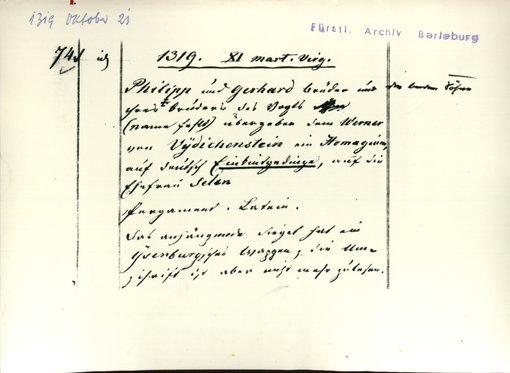 1319 Oktober 21
Fürstl. Archiv Berleburg
74d
1319. XI mart. Virg.
Philipp und Gerhard Brüder und die beiden Söhne
ihres Bruders des Vogts
(name fehlt) übergeben dem Werner
von Wydichenstein ein Homagium,
auf deutsch Eintbintgedinge, auf die
Ehefrau Selen
Pergament. Latein.
Das anhängende Siegel hat ein
Ysenburgisches Wappen; die Um-
schrift ist aber nicht mehr zu lesen.